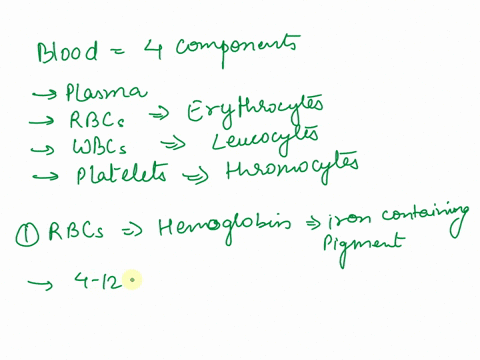 Blood = 4 components
→ Plasma
→ RBCs ⇒ Erythrocytes
→ WBCs ⇒ Leucocytes
→ Platelets ⇒ thromocytes
① RBCs ⇒ Hemoglobin ⇒ iron containing
Pigment
→ 4-12